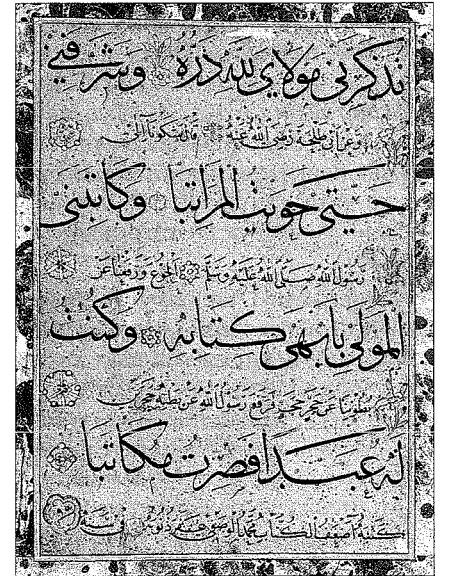 تذكرني مولاي لله دره وشرفني
وعن أبي طلحة رضي الله عنه قال شكونا إلى
حتى حويت المراتبا وكاتبني
رسول الله صلى الله عليه وسلم الجوع ورفعنا عن
المولى بأبهى كتابه وكنت
بطوننا عن حجر حجر فرفع رسول الله عن بطنه حجرين
له عبدا فصرت مكاتبا
كتبه أضعف الكتاب محمد في سنة